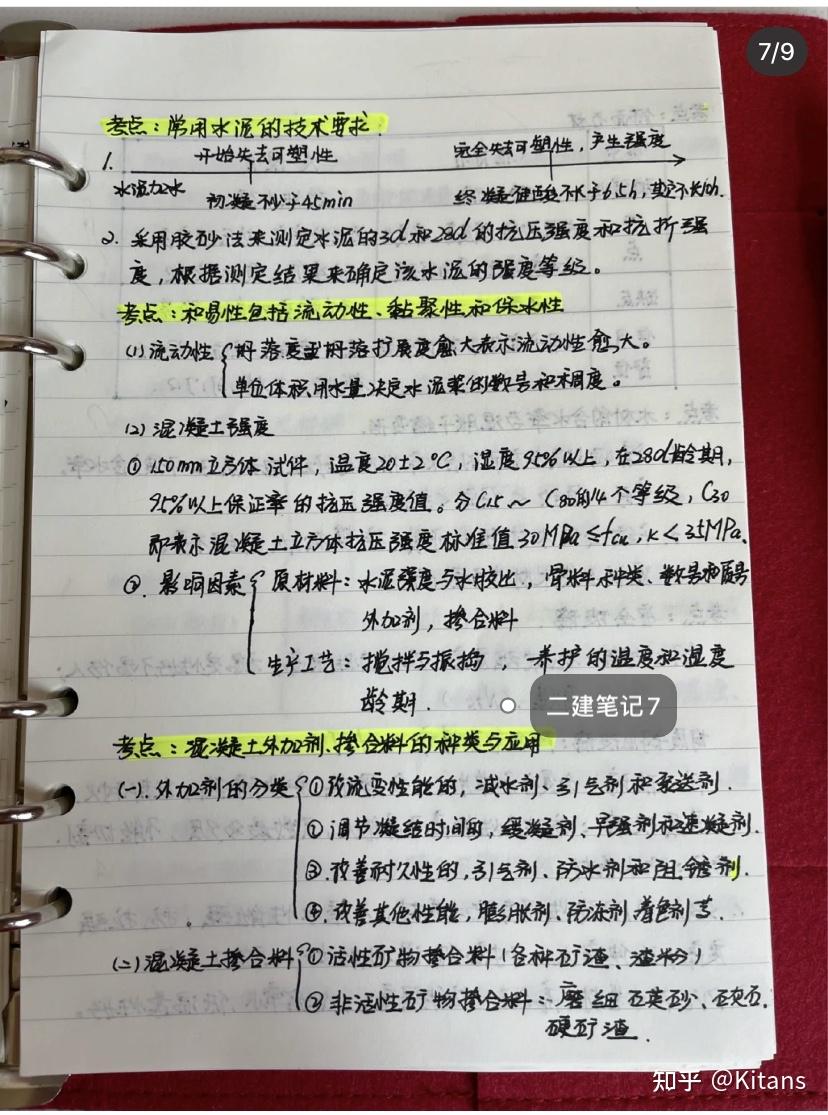 7/9
考点:常用水泥的技术要求
1. 开始失去可塑性 完全失去可塑性,产生强度
水泥加水 初凝不少于45min 终凝硅酸不大于6.5h,其它不长10h.
2. 采用胶砂法来测定水泥的3d和28d的抗压强度和抗折强
度,根据测定结果来确定该水泥的强度等级。
考点:和易性包括流动性、黏聚性和保水性
(1)流动性 坍落度或坍落扩展度愈大表示流动性愈大。
单位体积用水量决定水泥浆的数量和稠度。
(2)混凝土强度
① 150mm立方体试件,温度20±2°C,湿度95%以上,在28d龄期,
95%以上保证率的抗压强度值。分C15~C80的14个等级,C30
即表示混凝土立方体抗压强度标准值30MPa≤fcu,k<35MPa.
②. 影响因素 原材料:水泥强度与水胶比,骨料种类、数量和质量
外加剂,掺合料
生产工艺:搅拌与振捣,养护的温度和湿度
龄期.
二建笔记7
考点:混凝土外加剂、掺合料的种类与应用
(一).外加剂的分类 ①改流变性能的,减水剂、引气剂和泵送剂.
②调节凝结时间的,缓凝剂、早强剂和速凝剂.
③.改善耐久性的,引气剂、防水剂和阻锈剂.
④.改善其他性能,膨胀剂、防冻剂、着色剂等.
(二)混凝土掺合料 ①活性矿物掺合料(各种矿渣、渣粉)
②非活性矿物掺合料:磨细石英砂、石灰石.
硬矿渣.
知乎 @Kitans